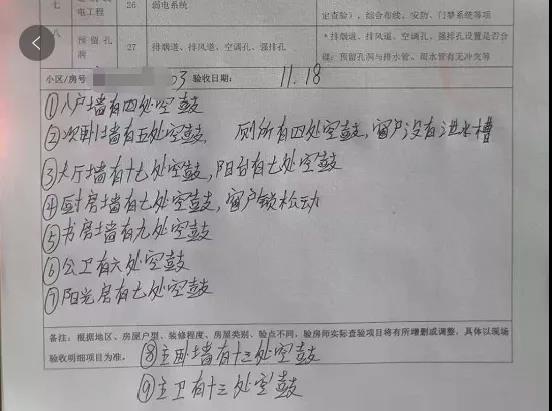 七 电工程 26 弱电系统 定查验），综合布线，安防、门禁系统等项
八 预留孔洞 27 排烟道、排风道、空调孔、强排孔 *排烟道、排风道、空调孔、强排孔设置是否合
预留孔洞与排水管、雨水管有无冲突等
小区/房号 03 验收日期： 11.18
①入户墙有四处空鼓
②次卧墙有五处空鼓， 厕所有四处空鼓，窗户没有泄水槽
③大厅墙有十七处空鼓，阳台有七处空鼓
④厨房墙有七处空鼓，窗户锁松动
⑤书房墙有九处空鼓
⑥公卫有六处空鼓
⑦阳光房有七处空鼓
备注：根据地区、房屋户型、装修程度、房屋类别、验点不同，验房师实际查验项目将有所增删或调整，具体以现场
验收明细项目为准。
⑧主卧墙有十三处空鼓
⑨主卫有十三处空鼓